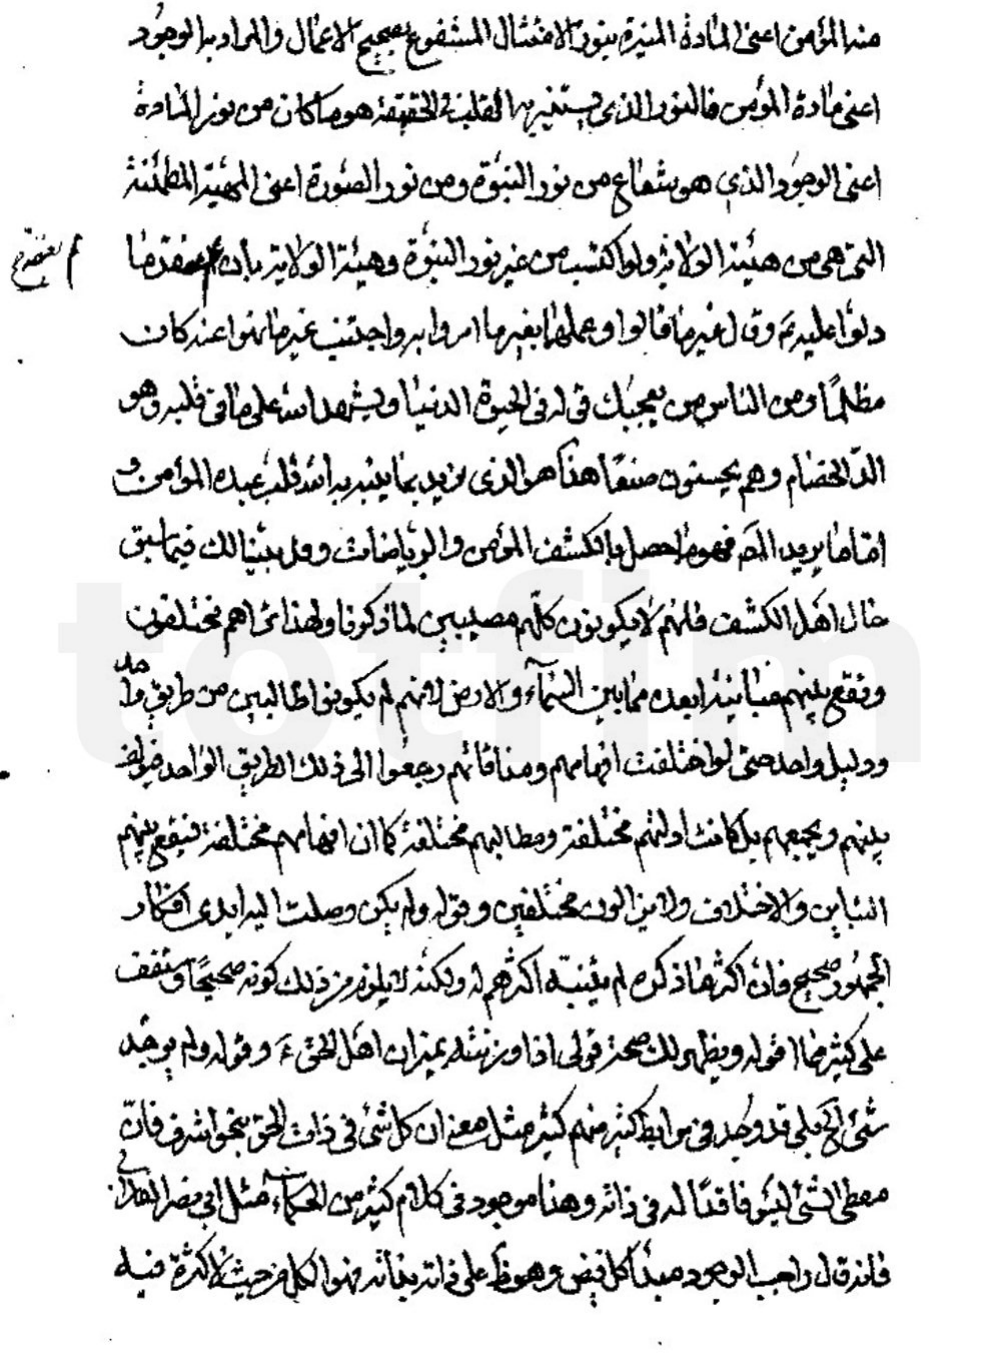 منه المؤمن اعنى المادة المنيرة بنور الامتثال المشفوع بصحيح الاعمال والمراد به الوجود
اعنى مادة المؤمن فالنور الذى يستنير به القلب فى الحقيقة هو ما كان من نور المادة
اعنى الوجود الذي هو شعاع من نور النبوة ومن نور الصورة اعنى المهية المطمئنة
التى هى من هيئة الولاية ولو اكتسب من غير نور النبوة وهيئة الولاية بأن لم يعتقد ما
لم يعتقد
دلوا عليه ثم وقال غير ما قالوا وعمل بغير ما امروا به واجتنب غير ما نهوا عنه كان
مظلما ومن الناس من يعجبك قوله فى الحيوة الدنيا ويشهد الله على ما فى قلبه وهو
الد الخصام وهم يحسنون صنعا هذا هو الذى يريد بما ينير به الله قلب عبده المؤمن و
اما ما يريد المص فهو ما حصل بالكشف المؤمن والرياضات وقد بينا لك فيما سبق
حال اهل الكشف فانهم لا يكونون كلهم مصيبين لما ذكرنا ولهذا تراهم مختلفون
ويقع بينهم مباينة ابعد مما بين السماء والارض لانهم لم يكونوا طالبين من طريق واحد
ودليل واحد حتى لو اختلفت افهامهم ومذاقاتهم رجعوا الى ذلك الطريق الواحد فيؤلف
بينهم ويجمعهم بل كانت ادلتهم مختلفة ومطالبهم مختلفة كما ان افهامهم مختلفة فيقع بينهم
التباين والاختلاف ولا يزالون مختلفين وقوله ولم يكن وصلت اليه ايدى افكار
الجمهور صحيح فان اكثر ما ذكره لم يتنبه اكثرهم له ولكنه لا يلزم من ذلك كونه صحيحا وستقف
على كثير مما اقوله ويظهر لك صحة قولى اذا وزنته بميزان اهل الحق ع وقوله ولم يوجد
شئ الخ بلى قد وجد فى مواضع كثير منهم كثير مثل معنى ان كل شئ فى ذات الحق بنحو اشرف فان
معطى الشئ ليس فاقدا له فى ذاته وهذا موجود فى كلام كثير من الحكماء مثل ابى نصر الفارابى
فانه قال واجب الوجود مبدأ كل فيض وهو ظاهر على ذاته بذاته فهو الكل من حيث لا كثرة فيه